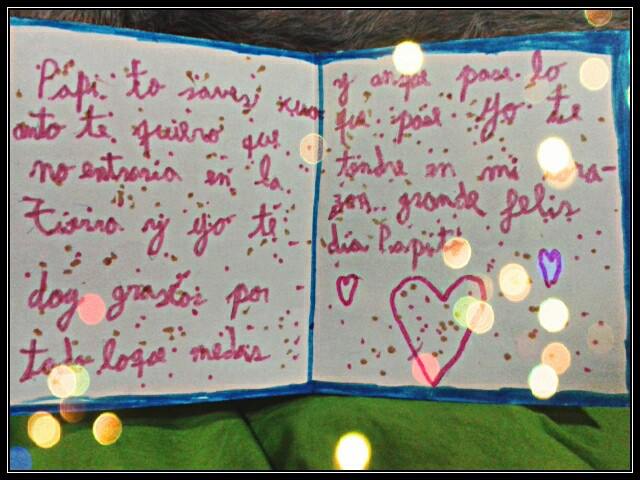 Papi to saves cuo
anto te quiero que
no entraria en la
Tierra y yo te
doy grasias por
todo loque medas
y anque pase lo
que pase yo te
tendre en mi cora-
zon.. grande felis
dia Papito